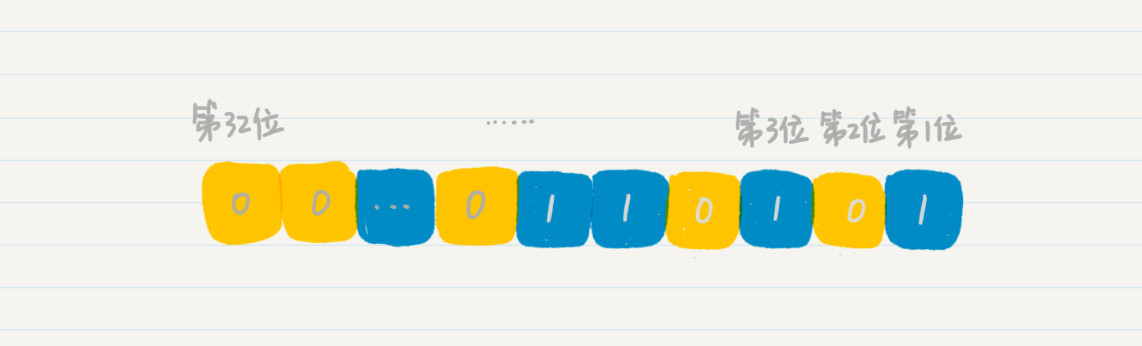 第32位 …… 第3位 第2位 第1位
0 0 … 0 1 1 0 1 0 1